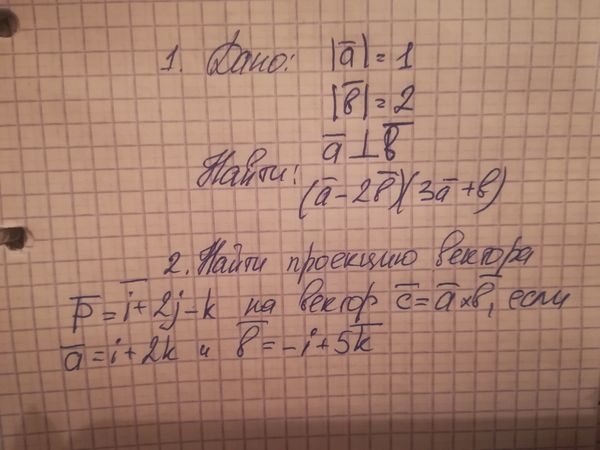 1. Дано: |a̅| = 1
|b̅| = 2
a̅ ⊥ b̅
Найти: (a̅ - 2b̅)(3a̅ + b)
2. Найти проекцию вектора
p̅ = i̅ + 2j - k на вектор c̅ = a̅ × b̅, если
a̅ = i + 2k и b̅ = -i + 5k̅